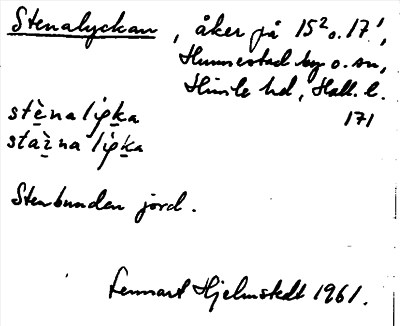 Stenalyckan, åker på 15² o. 17¹,
Hunnestad by o. sn,
Himle hd, Hall. l.
171
stènalyka
staìnalyka
Stenbunden jord.
Lennart Hjelmstedt 1961.